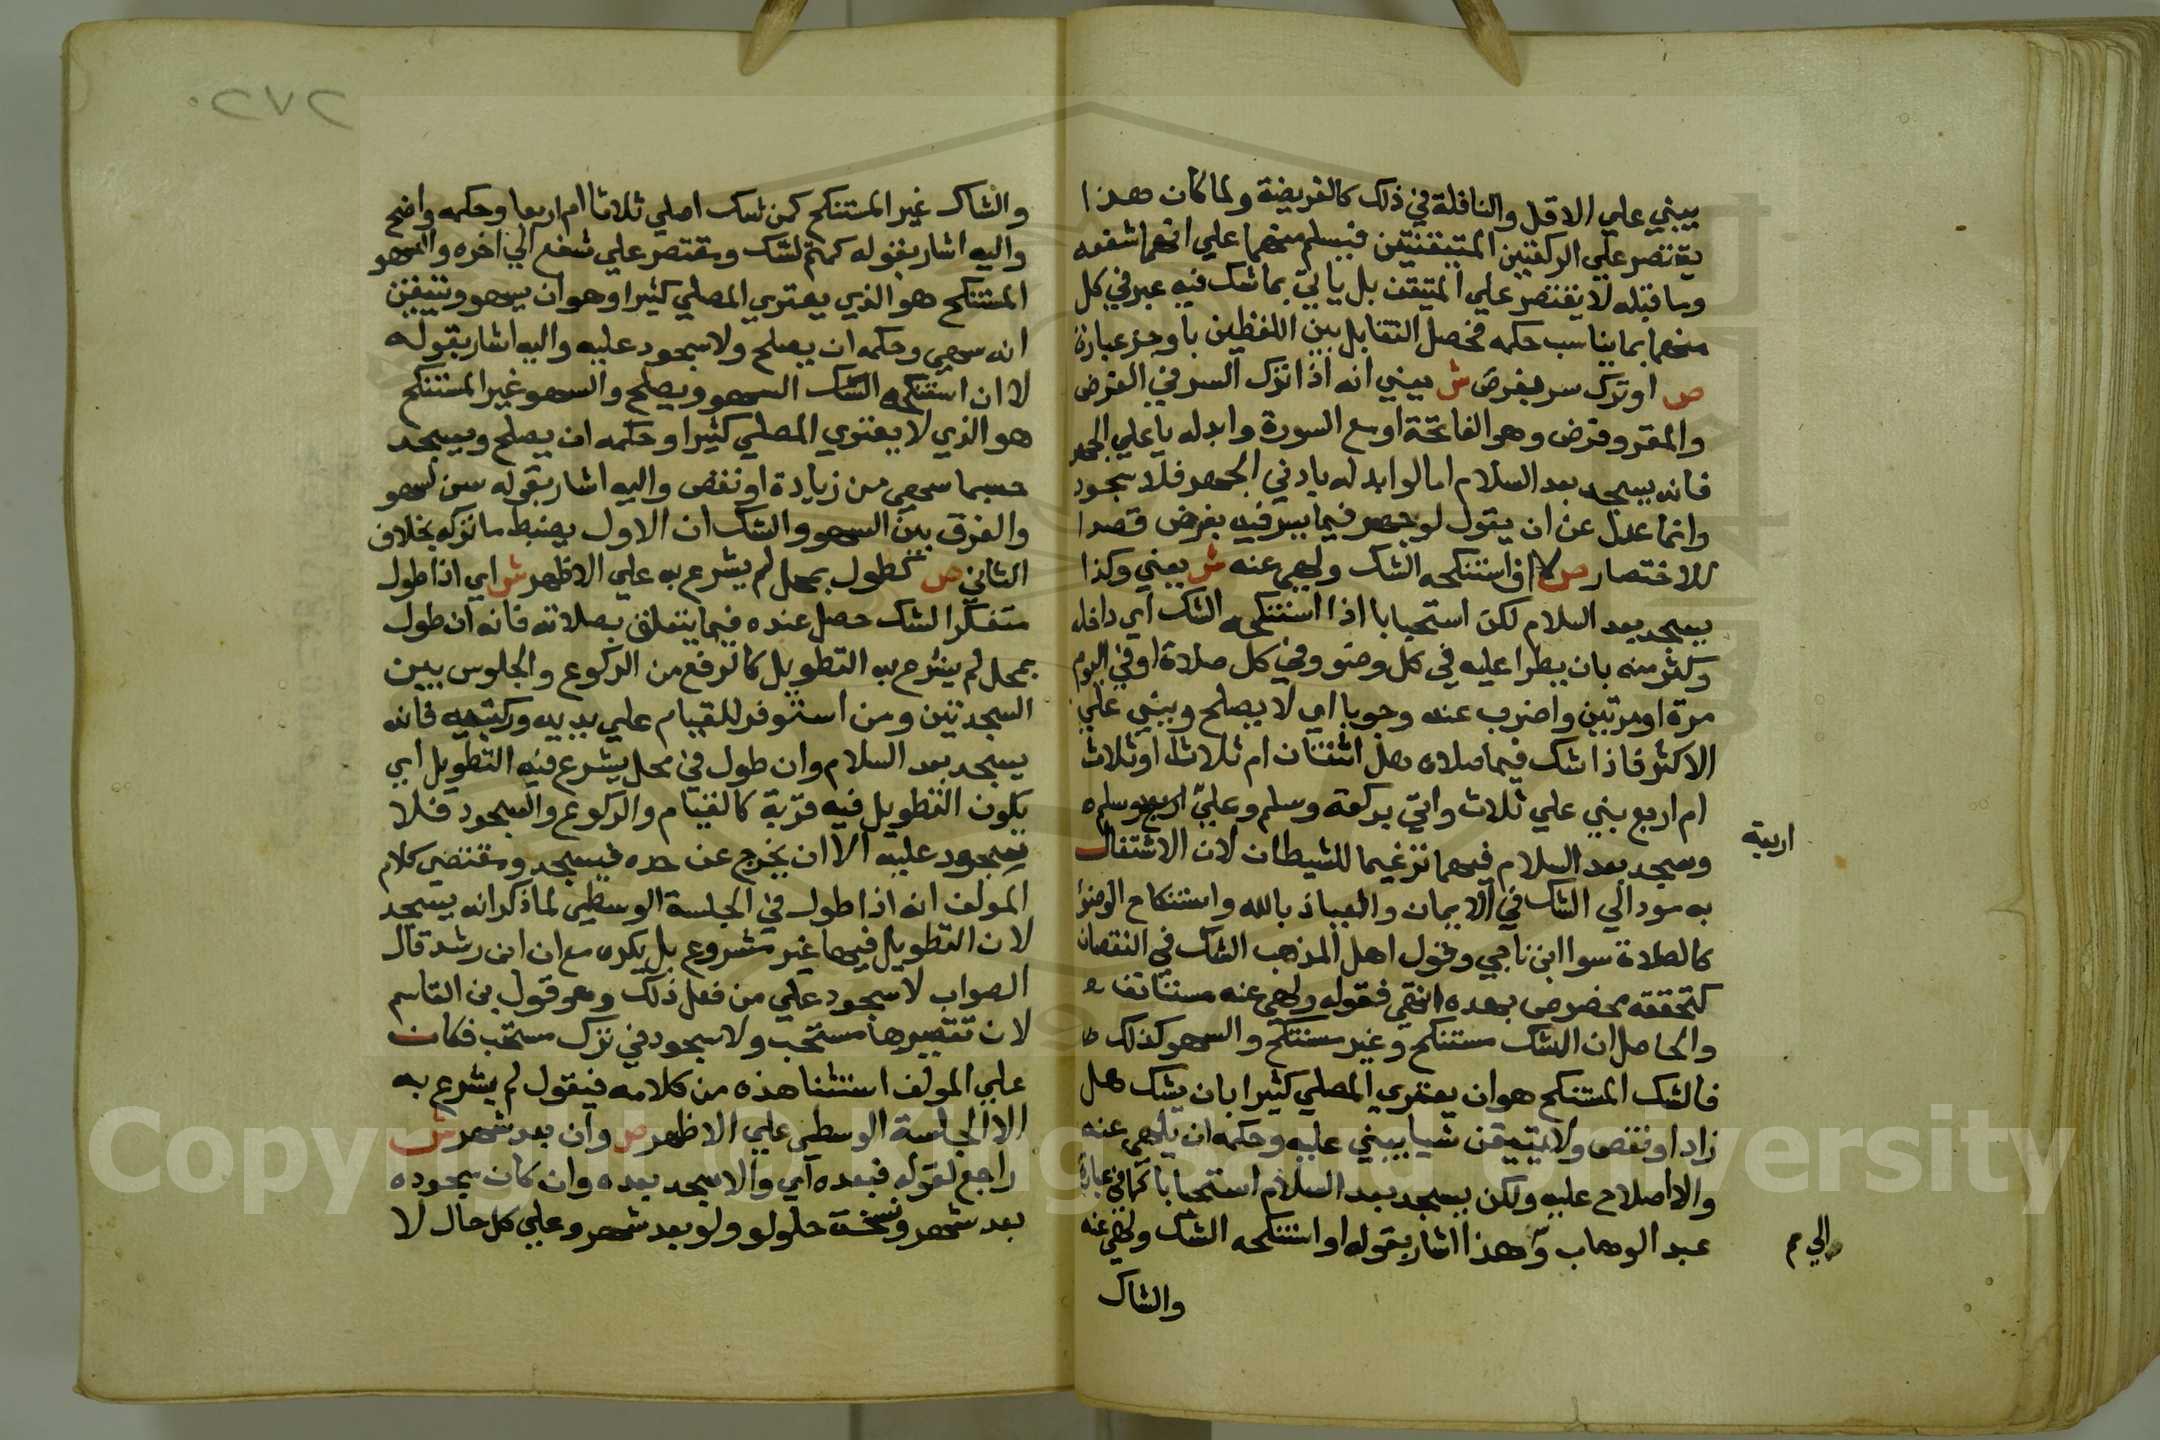 يبني علي الاقل والنافلة في ذلك كالفريضة ولما كان هذا
يقتصر علي الركعتين المتيقنتين فيسلم منهما علي انهما شفعه
وما قبله لا يقتصر علي المتيقن بل ياتي بما شك فيه عبر في كل
منهما بما يناسب حكمه فحصل التقابل بين اللفظين باوجز عبارة
ص او ترك سر بفرض ش يعني انه اذا ترك السر في الفرض
والمقروفرض وهو الفاتحة او مع السورة وابدله باعلي الجهر
فانه يسجد بعد السلام اما لو ابدله بادني الجهر فلا سجود
وانما عدل عن ان يقول لو جهر فيما يسر فيه بفرض قصدا
للاختصار ص او استنكحه الشك ولهي عنه ش يعني وكذا
يسجد بعد السلام لكن استحبابا اذا استنكحه الشك اي داخله
وكثر منه بان يطرا عليه في كل وضو وفي كل صلاة او في اليوم
مرة او مرتين واضرب عنه وجوبا اي لا يصلح ويبني علي
الاكثر فاذا شك فيما صلاه هل اثنتان ام ثلاث او ثلاث
ام اربع بني علي ثلاث واتي بركعة وسلم وعلي اربع وسلم
اربعة
وسجد بعد السلام فيهما ترغيما للشيطان لان الاشتغال
به مود الي الشك في الايمان والعياذ بالله واستنكاح الوضوء
كالصلاة سوا ابن ناجي وقول اهل المذهب الشك في النقصان
كتحققه مخصوص بهذه انتهي فقوله ولهي عنه مستانف
والحاصل ان الشك مستنكح وغير مستنكح والسهو كذلك
فالشك المستنكح هو ان يعتري المصلي كثيرا بان يشك هل
زاد او نقص ولا يتيقن شيا يبني عليه وحكمه ان يلهي عنه
والا اصلاح عليه ولكن يسجد بعد السلام استحبابا كما في عبارة
عبد الوهاب و هذا اشار بقوله او استنكحه الشك ولهي عنه
والي
والشاك
٢٧٢
والشاك غير المستنكح كمن شك اصلي ثلاثا ام اربعا وحكمه واضح
واليه اشار بقوله كمتم لشك ومقتصر علي شفع الي اخره والسهو
المستنكح هو الذي يعتري المصلي كثيرا وهو ان يسهو ويتيقن
انه سهي وحكمه ان يصلح ولا سجود عليه واليه اشار بقوله
لا ان استنكحه الشك السهو ويصلح والسهو غير المستنكح
هو الذي لا يعتري المصلي كثيرا وحكمه ان يصلح ويسجد
حسبما سهي من زيادة او نقص واليه اشار بقوله سن لسهو
والفرق بين السهو والشك ان الاول يضبط ما تركه بخلاف
الثاني ص كطول بمحل لم يشرع به علي الاظهر ش اي اذا طول
متفكرا لشك حصل عنده فيما يتعلق بصلاته فانه ان طول
بمحل لم يشرع به التطويل كالرفع من الركوع والجلوس بين
السجدتين ومن استوفز للقيام علي يديه وركبتيه فانه
يسجد بعد السلام وان طول في محل يشرع فيه التطويل اي
يكون التطويل فيه قربة كالقيام والركوع والسجود فلا
سجود عليه الا ان يخرج عن حده فيسجد ومقتضي كلام
المولف انه اذا طول في الجلسة الوسطي لما ذكر انه يسجد
لان التطويل فيها غير مشروع بل يكره مع ان ابن رشد قال
الصواب لا سجود علي من فعل ذلك وهو قول بن القاسم
لان تقصيرها مستحب ولا سجود في ترك مستحب فكان
علي المولف استثنا هذه من كلامه فيقول لم يشرع به
الا الجلسة الوسطي علي الاظهر ص وان بعد شهر ش
راجع لقوله فبعده اي والا سجد بعده وان كان سجوده
بعد شهر ونسخة حلولو ولو بعد شهر وعلي كل حال لا
Copyright © King Saud University